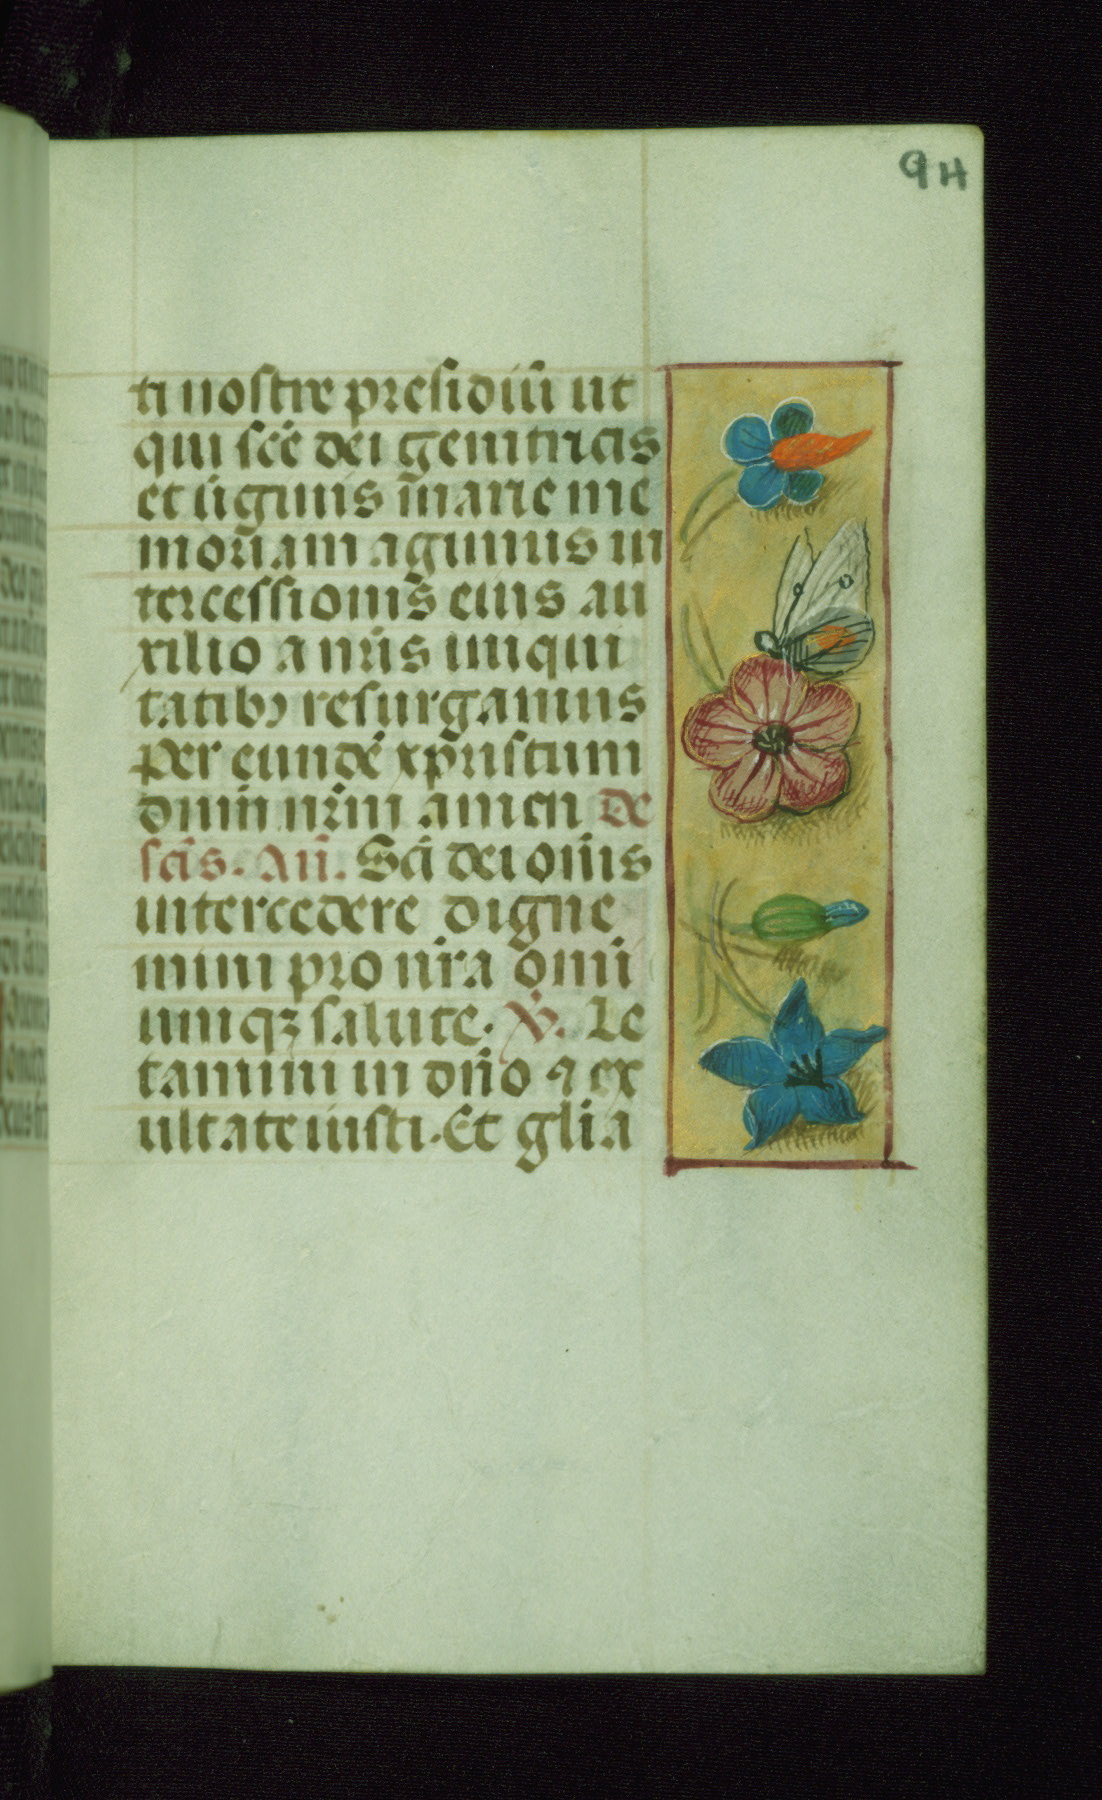 94
ti nostre presidiū ut
qui scē dei genitricis
et ūginis m̄arie me
moriam agimus in
tercessionis eius au
xilio a nr̄is iniqui
tatibꝰ resurgamus
Per eundē xp̄ristum
dn̄m nr̄m amen De
scīs. An̄. Scī dei om̄s
intercedere digne
mini pro nr̄a om̄i
umqꝫ salute. V̄. Le
tamini in dn̄o ⁊ ex
ultate iusti. Et gl̄ia